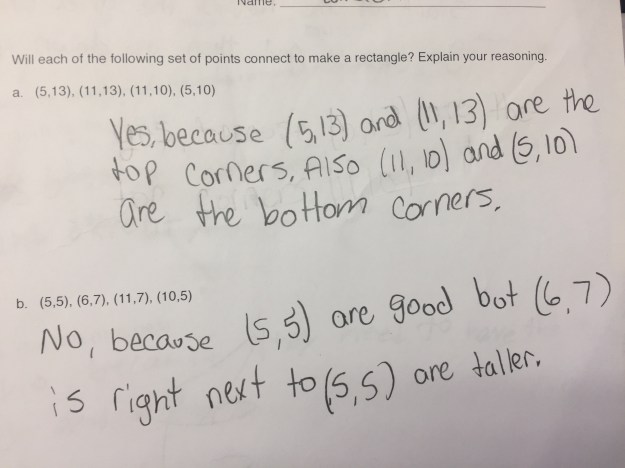 Name:
Will each of the following set of points connect to make a rectangle? Explain your reasoning.
a. (5,13), (11,13), (11,10), (5,10)
Yes, because (5,13) and (11,13) are the
top corners, Also (11,10) and (5,10)
are the bottom corners.
b. (5,5), (6,7), (11,7), (10,5)
No, because (5,5) are good but (6,7)
is right next to (5,5) are taller.